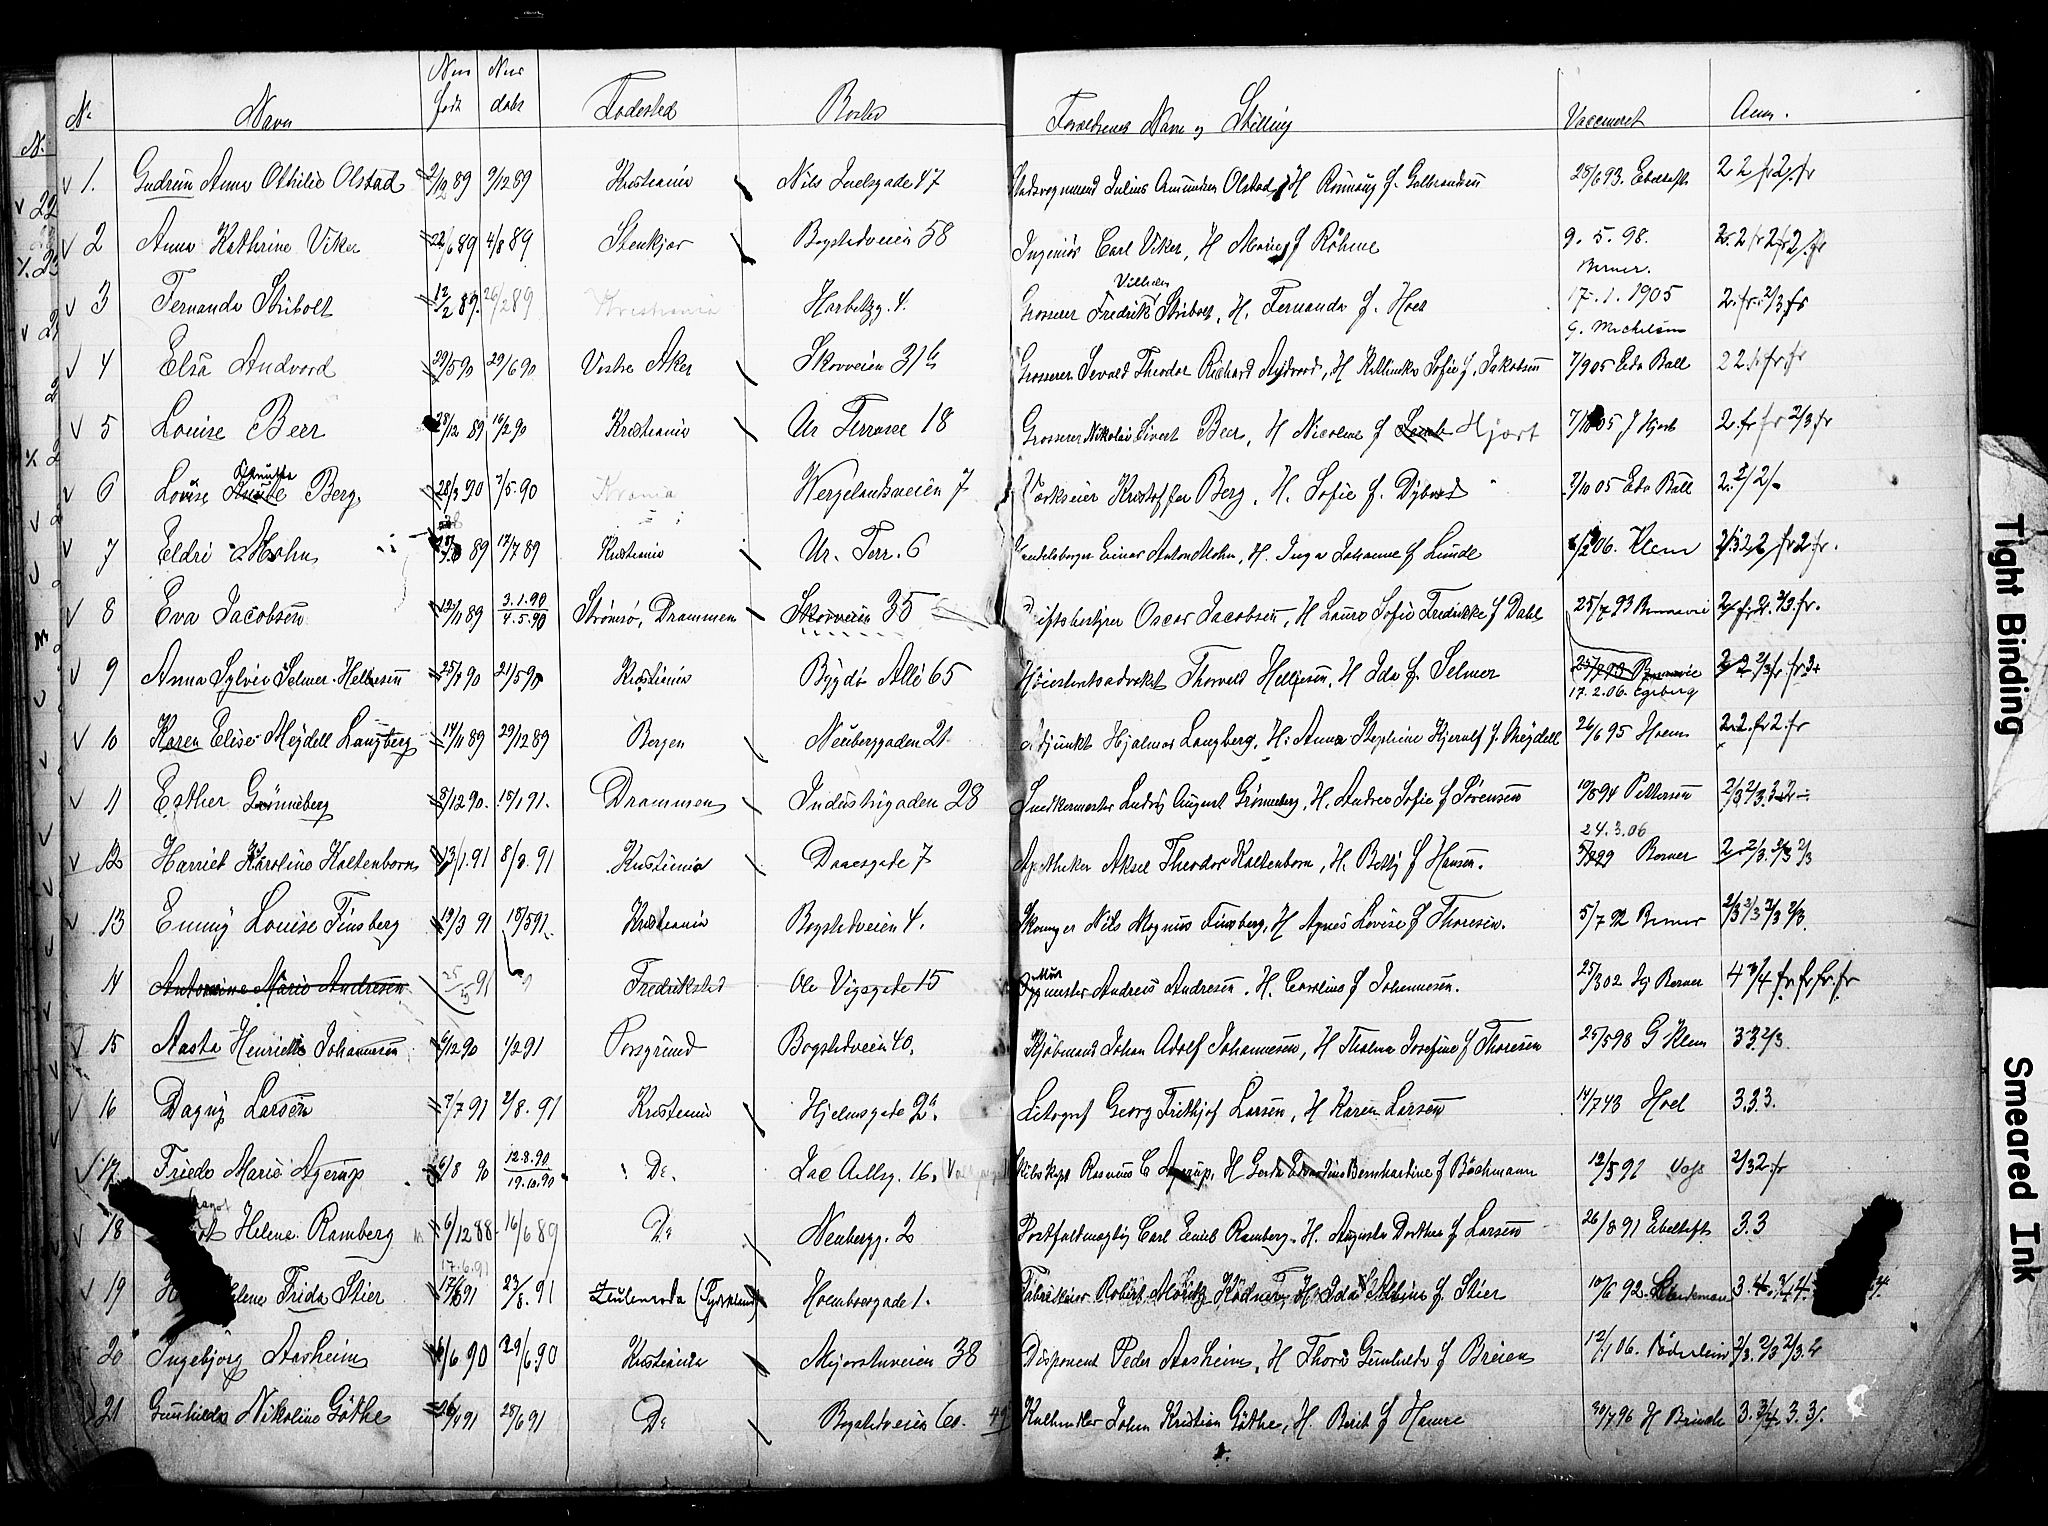 Nr Navn Naar født Naar døbt Fødested Bosted Forældrenes Navn og Stilling Vaccineret Anm.
1. Gudrun Anna Othilie Olstad 2/12 89 9/12 89 Kristiania Nils Juelsgade 47 Julius Amundsen Olstad, H f. Gulbrandsen 25/6 93. Ebeltoft 2 2 fr 2. fr
2 Anna Kathrine Viker 22/6 89 4/8 89 Stenkjær Bogstadveien 58 Ingeniør Carl Viker, H Marie f Röhme 9. 5. 98. Berner. 2. 2 fr 2. fr 2. fr
3 Fernanda Stribolt 12/2 89. 26/2 89 Kristiania Harbitzg. 4. Grosserer Fredrik Vilhelm Stribolt, H. Fernanda f. Hoel 17. 1. 1905 G. Michelsen 2. fr. 2/3 fr
4 Elsa Andvord 29/5 90 29/6 90 Vestre Aker Skovveien 31 b Grosserer Sevald Theodor Richard Andvord, H Kathinka Sofie f. Jakobsen 7/9 05 Edv Bull 2 2. fr. fr
5 Louise Beer 28/12 89 16/2 90 Kristiania Ur Terrasse 18 Grosserer Nikolai Sivert Beer, H Nicoline f Hjort 7/10 05 J Hjort 2. fr fr 2/3 fr
6 Lovise Berg 28/3 90 7/5. 90 Krania Wergelandsveien 7 Værkseier Kristoffer Berg, H. Sofie f. Dybvad 7/10 05 Edv Bull 2. 2/ 2/.
7 Eldri Mohn 89 17/7 89 Kristiania Ur. Terr. 6 Einar Anton Mohn, H. Inga Johanne f Lunde 06. Klem 2 fr 2. fr.
8 Eva Jacobsen 19/11 89 3.1.90 4.5.90 Strømsø, Drammen Skovveien 35 Driftsbestyrer Oscar Jacobsen, H Laura Sofie Fredrikke f Dahl 25/7 93 2. fr. 2. 2/3. fr.
9 Anna Sylvie Selmer Helliesen 25/4 90 21/5 90 Kristiania Bygdø Allé 65 Høiesteretsadvokat Thorvald Helliesen, H Ida f. Selmer 17. 2. 06. Egeberg 2 2 2/3 fr fr 3
10 Karen Elise Meydell Langberg 14/11 89 29/12 89 Bergen Neuberggaden 21. Adjunkt Hjalmar Langberg, H. Anna Stephine Hjerulf f. Meydell 26/6 95 Hoem 2. 2. fr 2. fr
11 Esther Grønneberg 5/12 90. 18/1 91. Drammen Industrigaden 28 Snedkermester Ludvig August Grønneberg, H. Andrea Sofie f Sørensen 10/8 94 Pettersen 2/3 2/3. 3 2
12 Harriet Karoline Kaltenborn 13/1. 91 8/3. 91 Kristiania Daaesgade 7 Apotheker Aksel Theodor Kaltenborn, H. Betty f Hansen. 24. 3. 06 Berner 2 2/3. 2/3 2/3
13 Emmy Louise Finsberg 19/3 91 18/5 91 Kristiania Bogstadveien 4. Nils Magnus Finsberg, H Agnes Lovise f Thoresen. 5/7 92 Berner 2/3 2/3 2/3 2/3
14 Antonine Marie Andresen 25/3 91 Fredrikstad Ole Vigsgade 15 Andreas Andresen, H. Caroline f Johannesen. 25/3 02 Berner 4 3/4 fr fr fr fr
15 Aasta Henriette Johannesen 6/12 90 1/2 91 Porsgrund Bogstadveien 40. Kjøbmand Johan Adolf Johannesen, H Thalma Josefine f Thoresen 25/5 98 G Klem 3 3 2/3.
16 Dagny Larsen 7/7 91 2/8. 91 Kristiania Hjelmsgade 2a. Litograf Georg Frithjof Larsen, H Karen Larsen 14/7 93 Hoel 3. 3 3.
17. Frieda Marie Agerup 6/8 90 12.8.90 19.10.90 Do Jac Aallsg. 16. Skibskapt Rasmus C Agerup, H Gerda Edvardine Bernhardine f Bachmann 12/5 92 Voss 2/3 2. fr
18 Helene Ramberg 6/12 88 16/6 89 Do Neubergg. 2 Postfuldmægtig Carl Emil Ramberg, H. Augusta Dorthea f Larsen 26/8 91 Ebeltoft 3. 3
17.6.91
19 Helene Frida Stier 17/6 91 23/8. 91 Zeulenroda (Tydskland) Holmboesgade 1. Fabrikeier Robert Moritz Ködner, H. Ida Alwine f. Stier 10/6 92. 3. 4. 3/4 4.
20 Ingebjørg Aasheim 6/6 90 29/6. 90 Kristiania Majorstuveien 38 Disponent Peder Aasheim, H Thora Gunhilda f Breien 12/1 06. Döderlein 2/3. 2/3 2/3. 2
21 Gunhilda Nikoline Göthe 26/4 91 28/6 91 Do Bogstadveien 60. 49 Kulhandler Johan Kristian Göthe, H. Berit f Hamre 30/7 96 H Brinch 3. 3/4. 3. 3.
Tight Binding
Smeared Ink